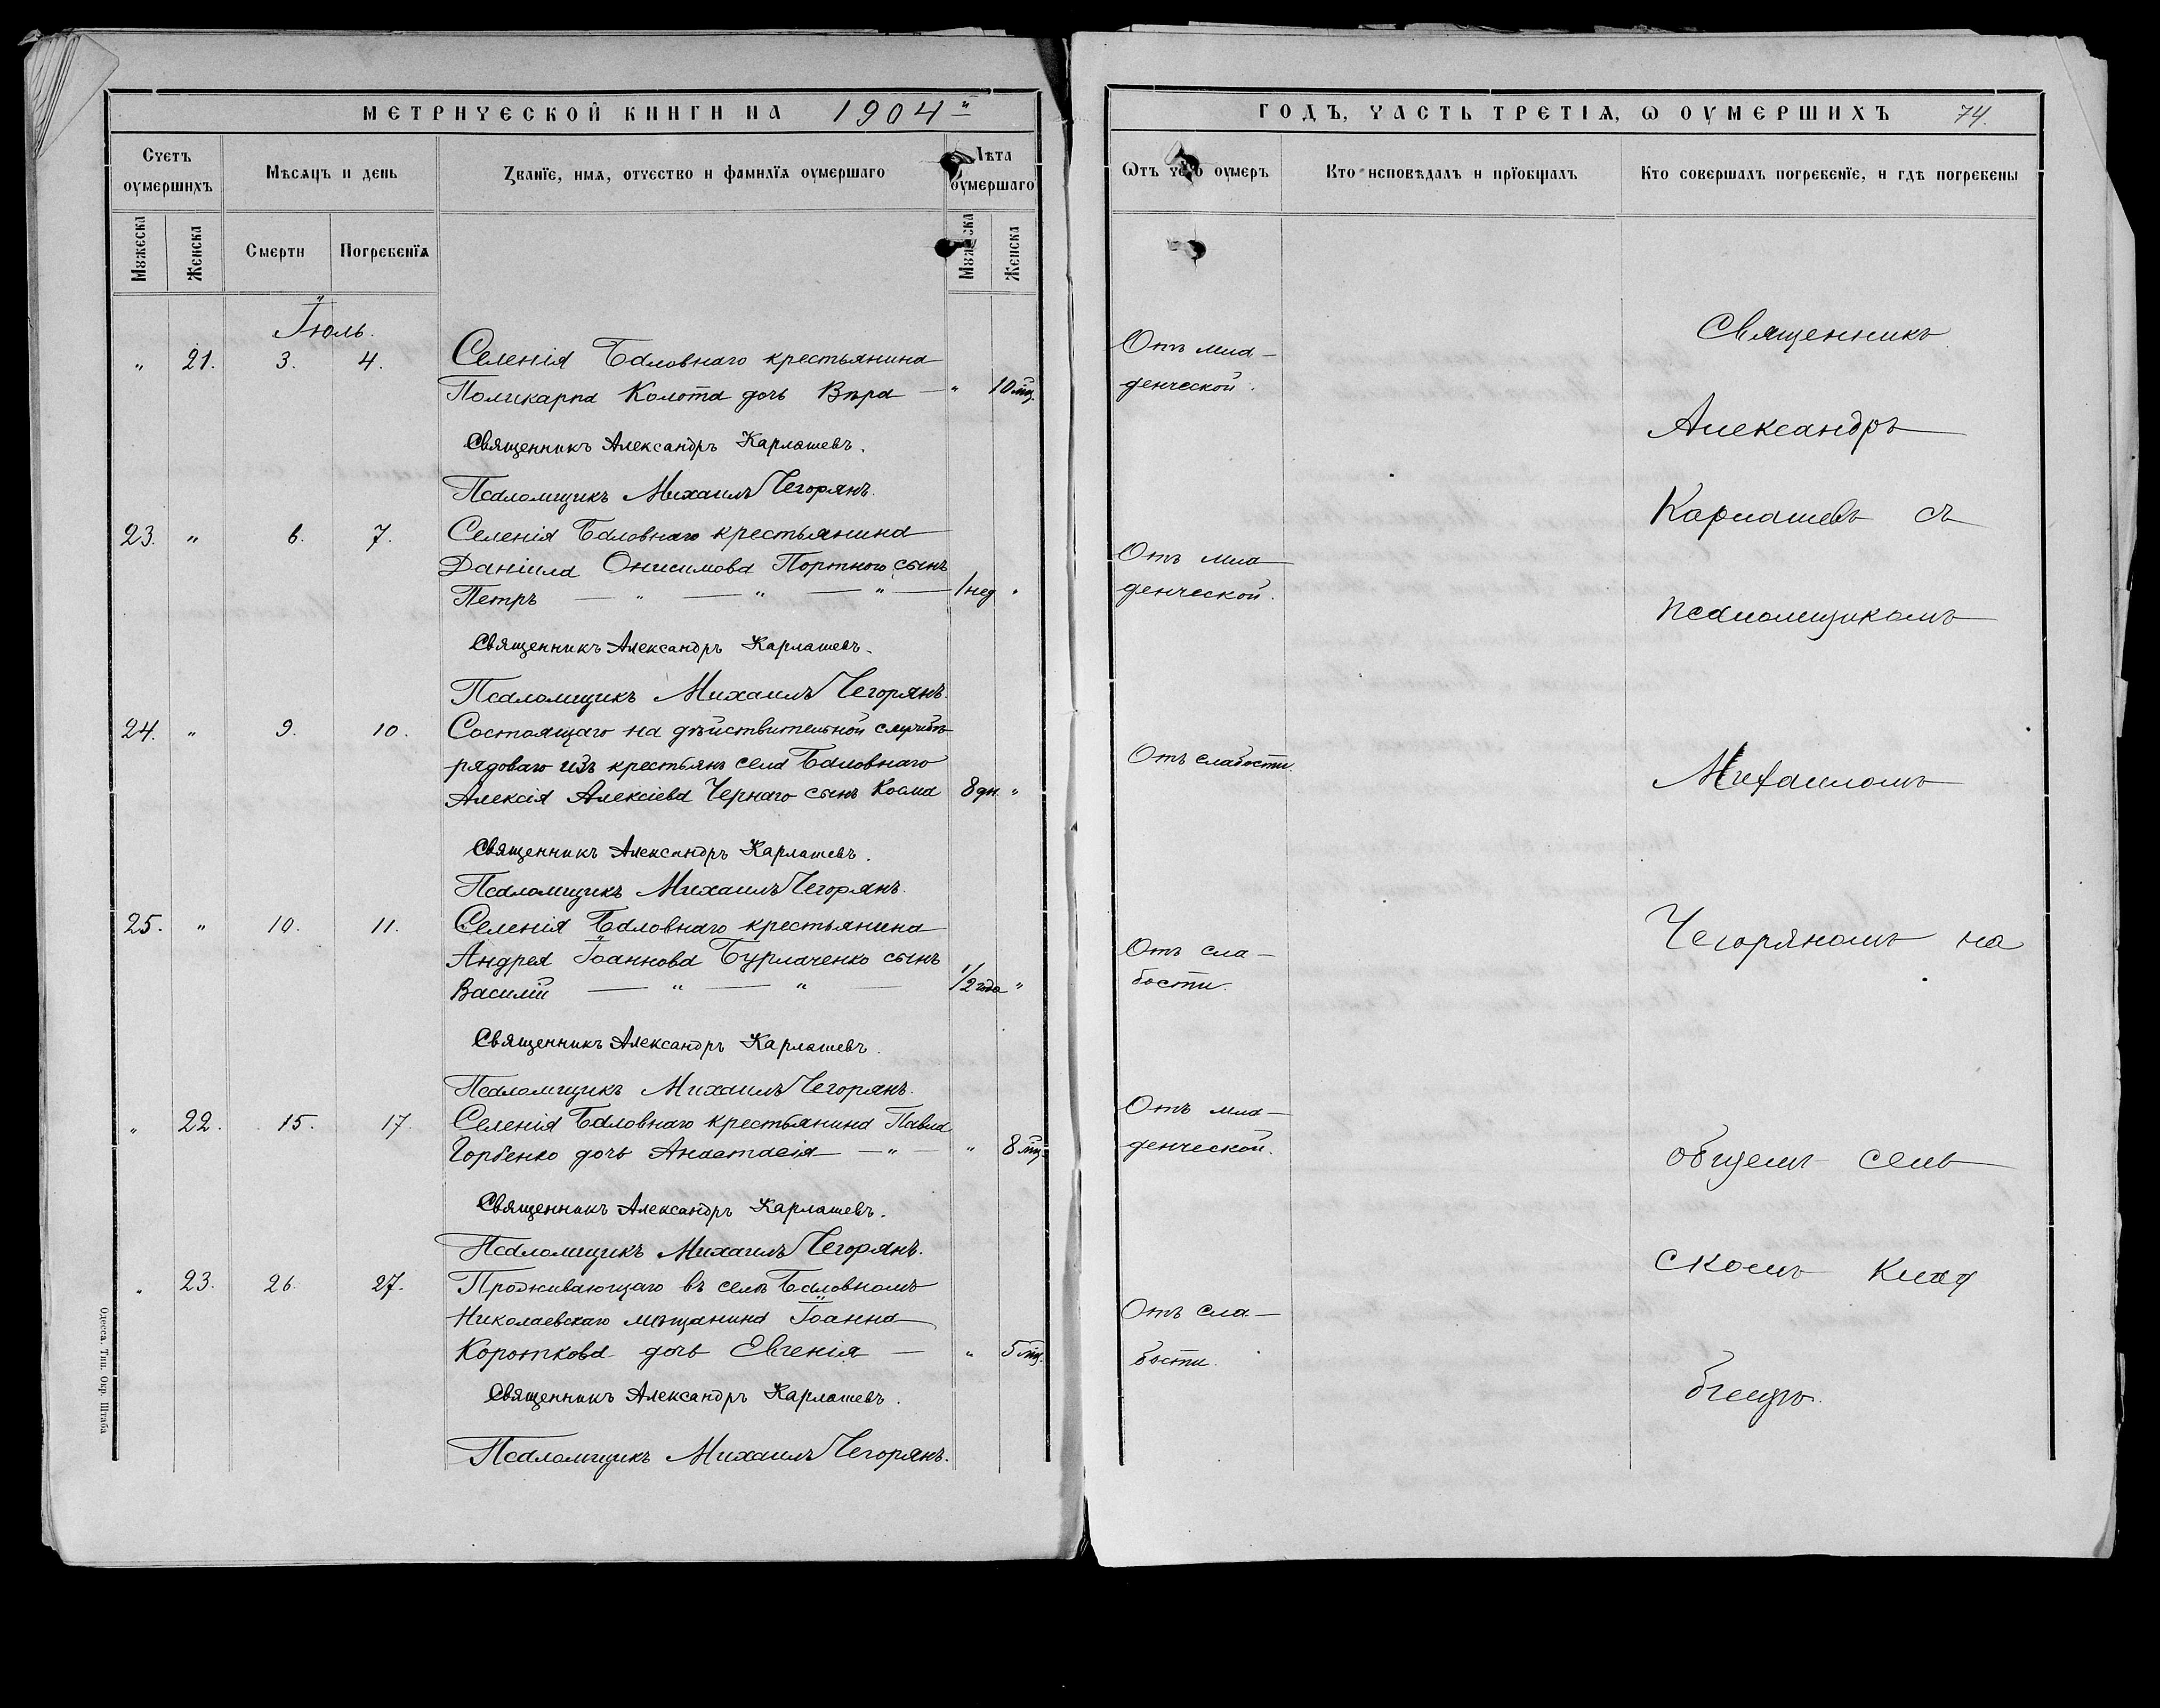 МЕТРИЧЕСКОЙ КНИГИ НА 1904й
Счетъ оумершихъ
Мѣсяцъ и день
Званїе, имя, отчество и фамилїя оумершаго
Лѣта оумершаго
Мужеска
Женска
Смерти
Погребенїя
Мужеска
Женска
Їюль.
" 21. 3. 4. Селенія Баловнаго крестьянина
Поликарпа Колота дочь Вѣра — " 10 мц.
Священникъ Александръ Карлашевъ.
Псаломщикъ Михаилъ Чегорянъ.
23. " 6. 7. Селенія Баловнаго крестьянина
Даніила Онисимова Портного сынъ
Петръ — " — " — " — 1 нед "
Священникъ Александръ Карлашевъ.
Псаломщикъ Михаилъ Чегорянъ.
24. " 9. 10. Состоящаго на дѣйствительной службѣ
рядоваго изъ крестьянъ села Баловнаго
Алексія Алексіева Чернаго сынъ Косма 8 дн. "
Священникъ Александръ Карлашевъ.
Псаломщикъ Михаилъ Чегорянъ.
25. " 10. 11. Селенія Баловнаго крестьянина
Андрея Їоаннова Бурлаченко сынъ
Василій — " — " — 1/2 года "
Священникъ Александръ Карлашевъ.
Псаломщикъ Михаилъ Чегорянъ.
" 22. 15. 17. Селенія Баловнаго крестьянина Павла
Горбенко дочь Анастасія — " — " 8 мц.
Священникъ Александръ Карлашевъ.
Псаломщикъ Михаилъ Чегорянъ.
" 23. 26. 27. Проживающаго въ селѣ Баловномъ
Николаевскаго мѣщанина Їоанна
Короткова дочь Евгенія — " 5 мц.
Священникъ Александръ Карлашевъ.
Псаломщикъ Михаилъ Чегорянъ.
Одесса. Тип. Окр. Штаба
ГОДЪ, ЧАСТЬ ТРЕТІЯ, Ѡ ОУМЕРШИХЪ 74.
Ѿтъ чего оумеръ
Кто исповѣдалъ и прїобщалъ
Кто совершалъ погребенїе, и гдѣ погребены
Отъ мла-
денческой.
Отъ мла-
денческой.
Отъ слабости.
Отъ сла-
бости.
Отъ мла-
денческой.
Отъ сла-
бости.
Священникъ
Александръ
Карлашевъ съ
псаломщикомъ
Михаиломъ
Чегоряномъ на
общемъ сель
скомъ клад
бищѣ.